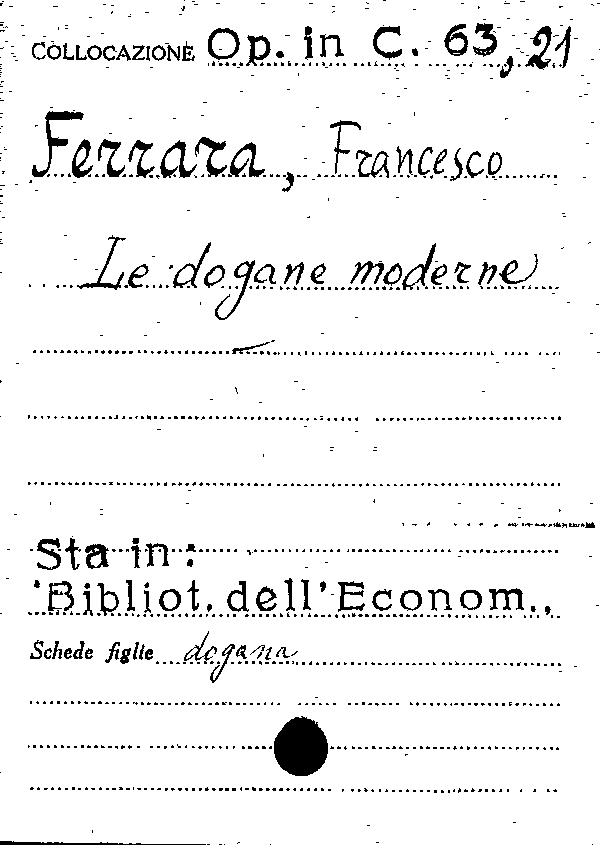 COLLOCAZIONE Op. in C. 63, 21
Ferrara, Francesco
Le dogane moderne
Sta in:
'Bibliot. dell' Econom.,
Schede figlie dogana